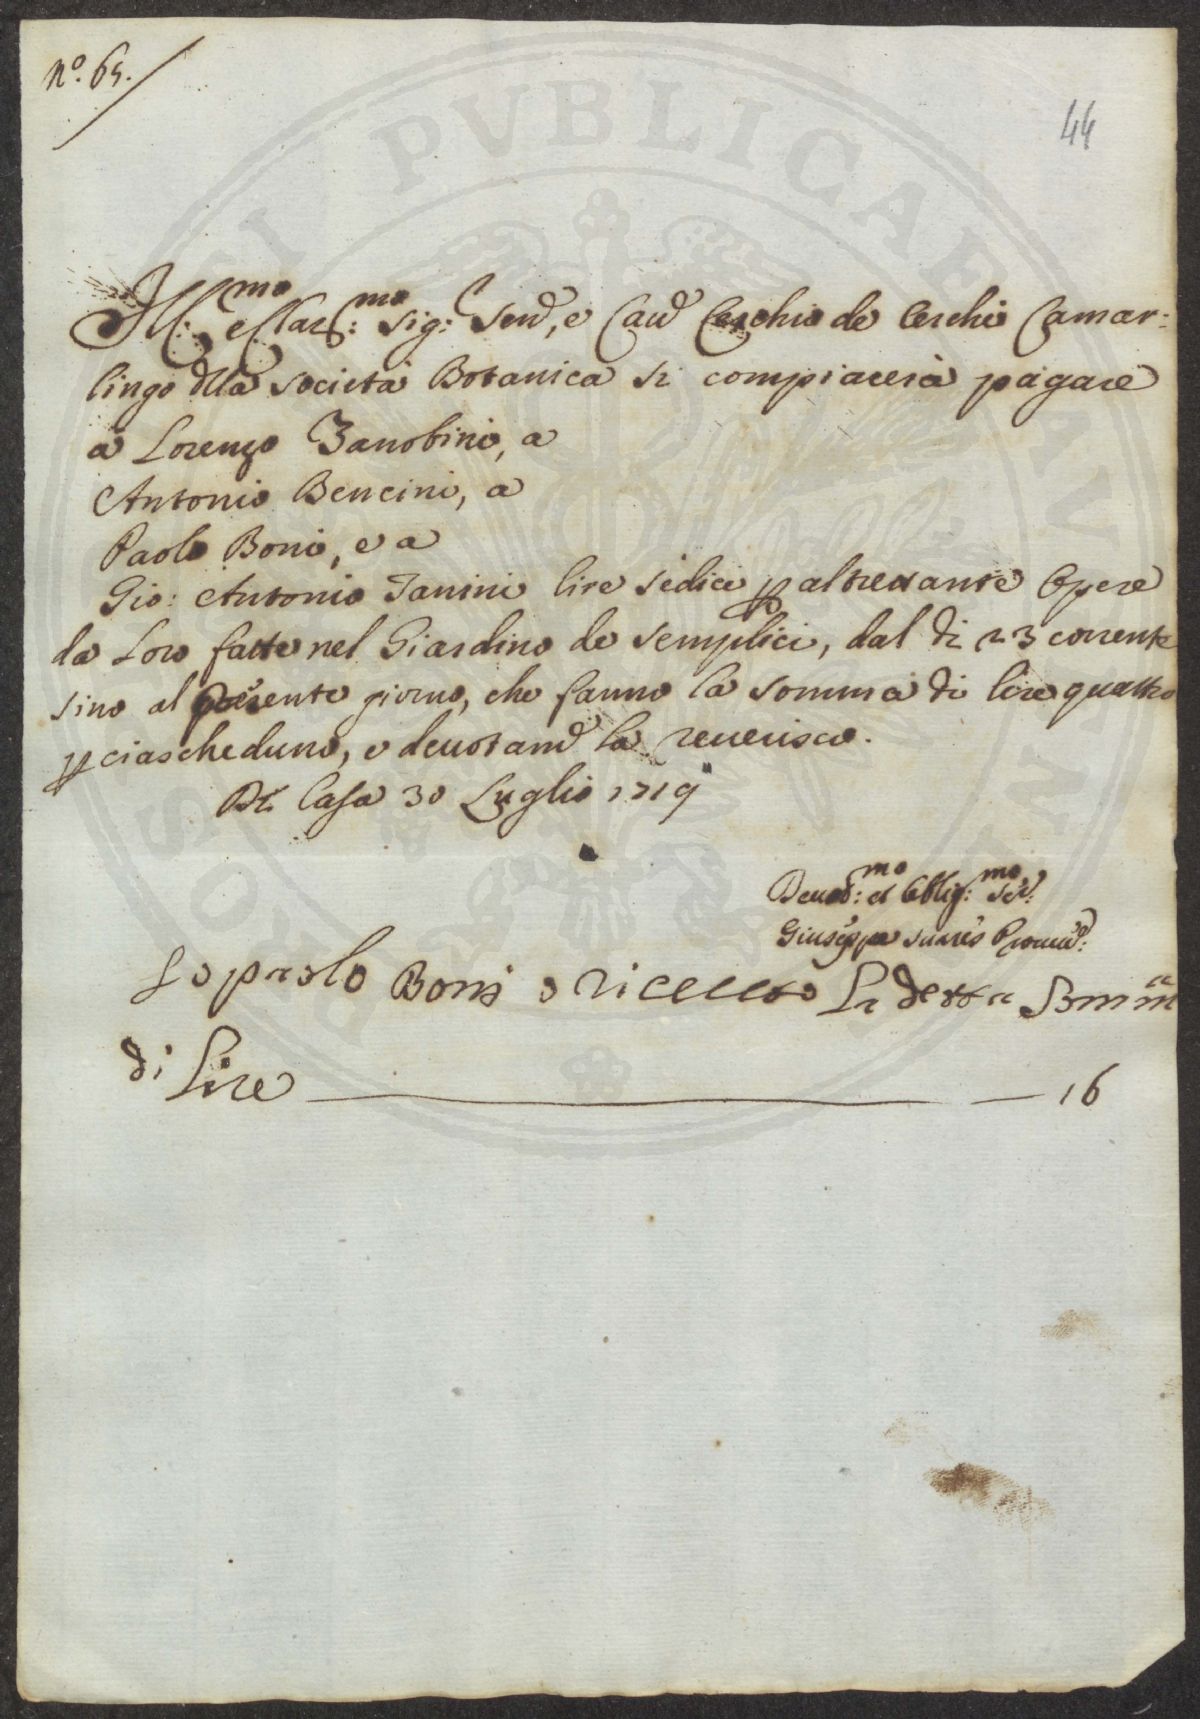 N.º 65.
44
Ill:mo e Clar:mo Sig: Send, e Caud Cerchio de Cerchi Camar-
lingo dlla Società Botanica si compiacerà pagare
a Lorenzo Zanobini, a
Antonio Bencini, a
Paolo Boni, e a
Gio: Antonio Tanini lire sedici p altrettante Opere
da Loro fatte nel Giardino de Semplici, dal di 23 corrente
sino al presente giorno, che fanno la somma di lire quattro
p ciascheduno, e deuotamd la reuerisco.
Di Casa 30 Luglio 1719
Deuot:mo et Oblig:mo Ser:
Giuseppe Suares Proued:
Io paolo Boni o riceuto La detta Somm
di Lire ——— 16
PVBLICAE